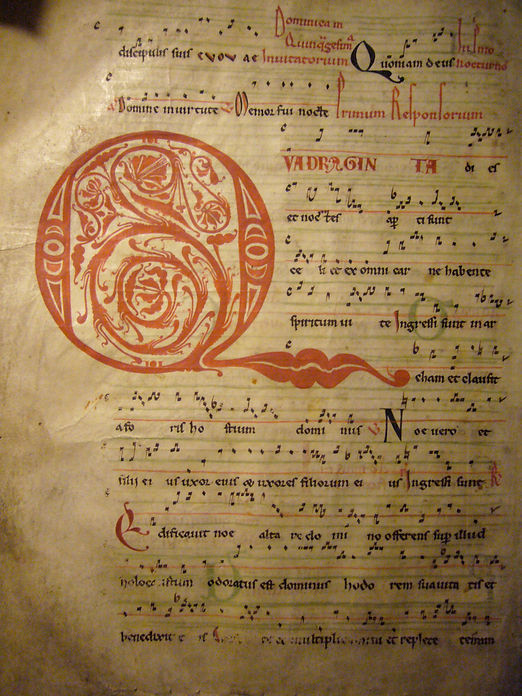 Dominica in
Quinq̄gesima
discipulis suis e v o v a e Invitatorium Quoniam deus
In p̄mo nocturno
Domine in virtute Memor fui nocte Primum Responsorium
QVADRAGIN TA di es
et noctes ap ti sunt
ce li et ex omni car ne habente
spiritum vi te Ingressi sunt in ar
cham et clausit
a fo ris ho stium domi nus Noe vero et
filii ei us uxor eius et uxores filiorum ei us Ingressi sunt
Edificavit noe alta re do mi no offerens sup̄ illud
odoratus est dominus hodo rem suavita tis et
benedixit et replete terram